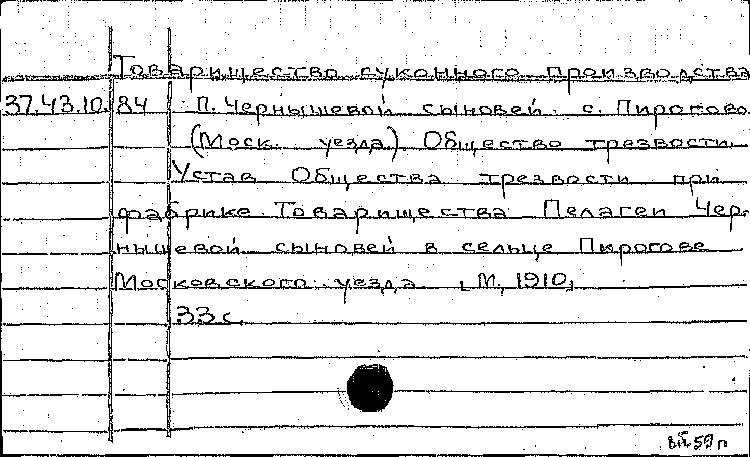 Товарищество суконного производства
37.43.10.84 П. Чернышевой сыновей. с. Пирогово
(Моск. уезда). Общество трезвости.
Устав Общества трезвости при
фабрике Товарищества Пелагеи Чер-
нышевой сыновей в сельце Пирогове
Московского уезда. [М, 1910]
33 с.